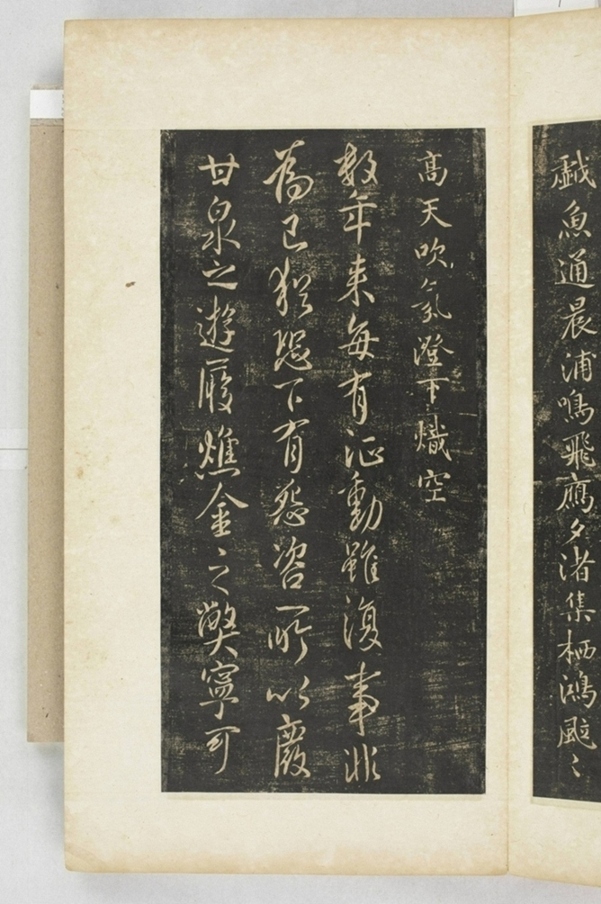 戲魚通晨浦鳴飛鴈夕渚集栖鴻颯〻
高天吹氛澄下熾空
數年来每有征動雖復事非
為己猶恐下有怨咨所以廢
甘泉之遊履燋金之弊寧可